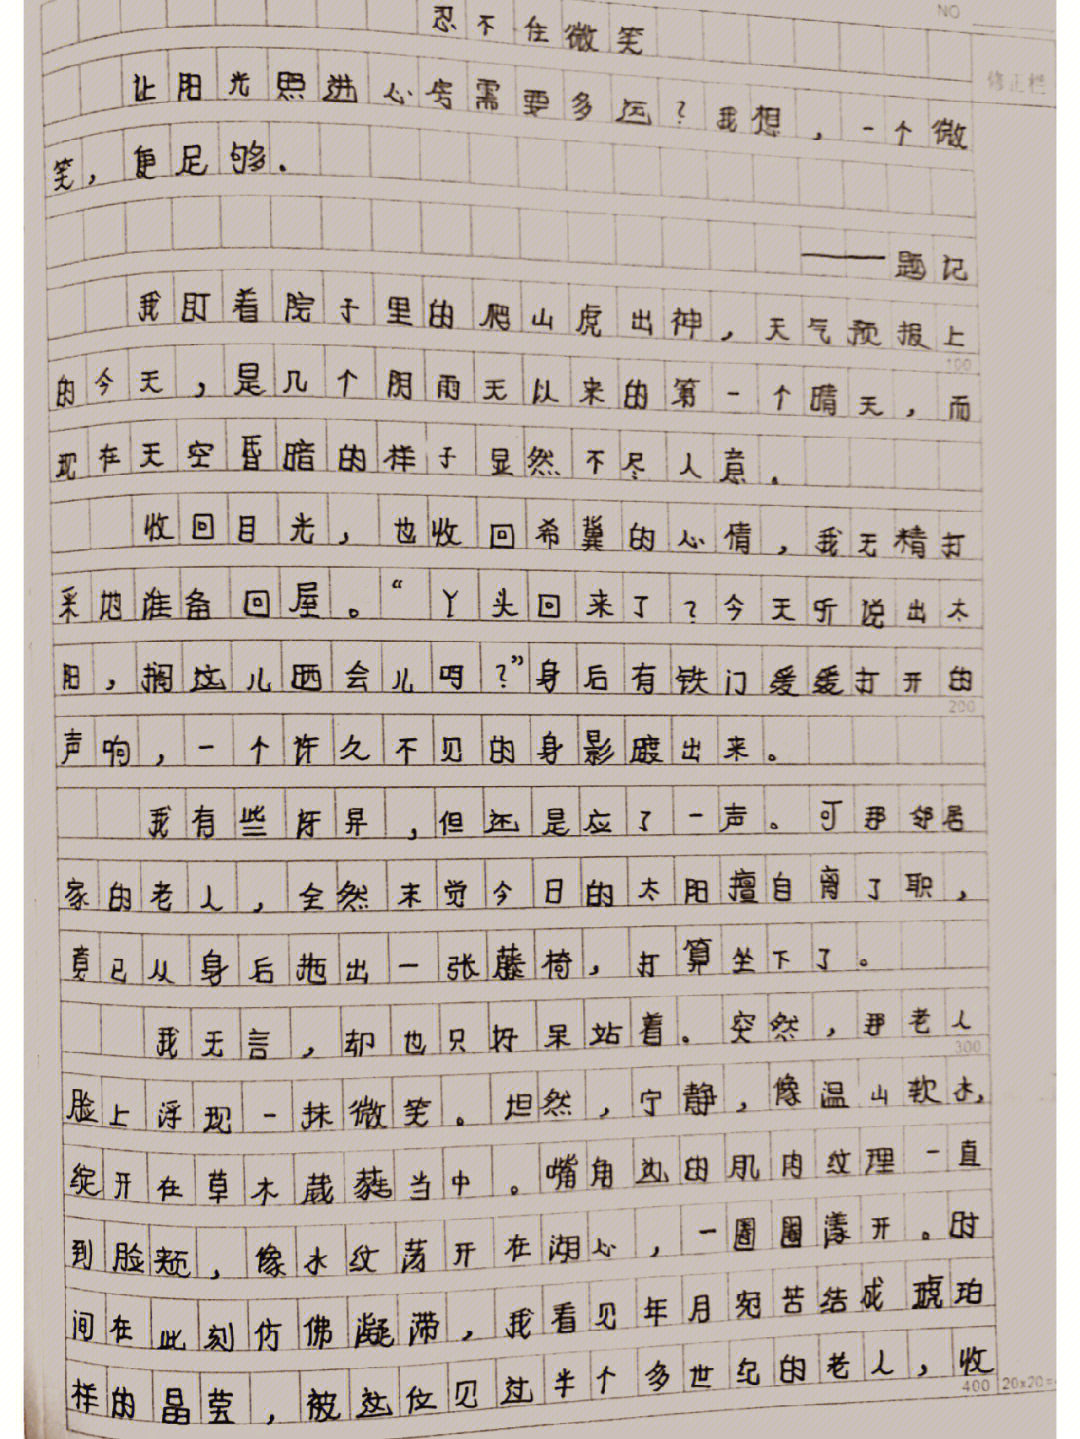 NO
忍不住微笑
修正栏
让阳光照进心房需要多远？我想，一个微
笑，便足够.
——题记
我盯着院子里的爬山虎出神，天气预报上
100
的今天，是几个阴雨天以来的第一个晴天，而
现在天空昏暗的样子显然不尽人意.
收回目光，也收回希冀的心情，我无精打
采地准备回屋。“丫头回来了？今天听说出太
阳，搁这儿晒会儿吗？”身后有铁门缓缓打开的
200
声响，一个许久不见的身影踱出来。
我有些讶异，但还是应了一声。可那邻居
家的老人，全然未觉今日的太阳擅自离了职，
竟已从身后拖出一张藤椅，打算坐下了。
我无言，却也只好呆站着。突然，那老人
300
脸上浮现一抹微笑。坦然，宁静，像温山软水，
绽开在草木葳蕤当中。嘴角边的肌肉纹理一直
到脸颊，像水纹荡开在湖心，一圈圈漾开。时
间在此刻仿佛凝滞，我看见年月宛若结成琥珀
样的晶莹，被这位见过半个多世纪的老人，收
400 20×20=